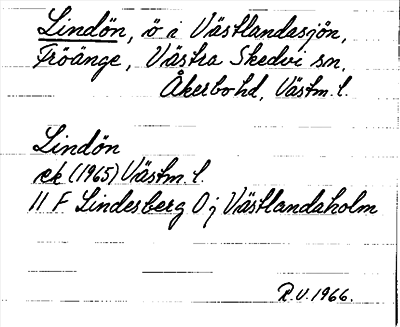 Lindön, ö i Västlandasjön,
Fröänge, Västra Skedvi sn.
Åkerbo hd, Västm. l.
Lindön
ek (1965) Västm. l.
11 F Lindesberg O j Västlandaholm
R.V. 1966.